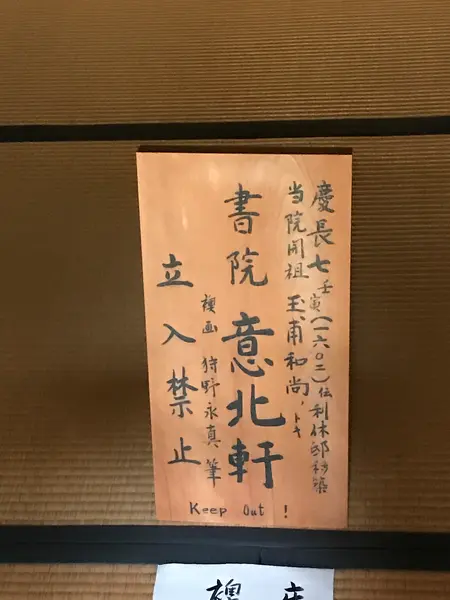 慶長七壬寅(一六〇二)伝利休邸移築
当院開祖 玉甫和尚、トキ
書院 意北軒
襖画 狩野永真 筆
立入禁止
Keep Out !